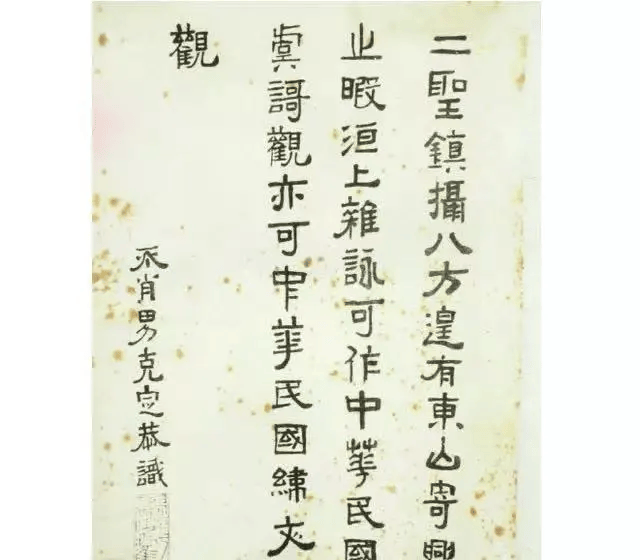 二聖鎮攝八方遑有東山寄興
止暇洹上雜詠可作中華民國
虞謌觀亦可中華民國緯文
觀
不肖男克定恭識